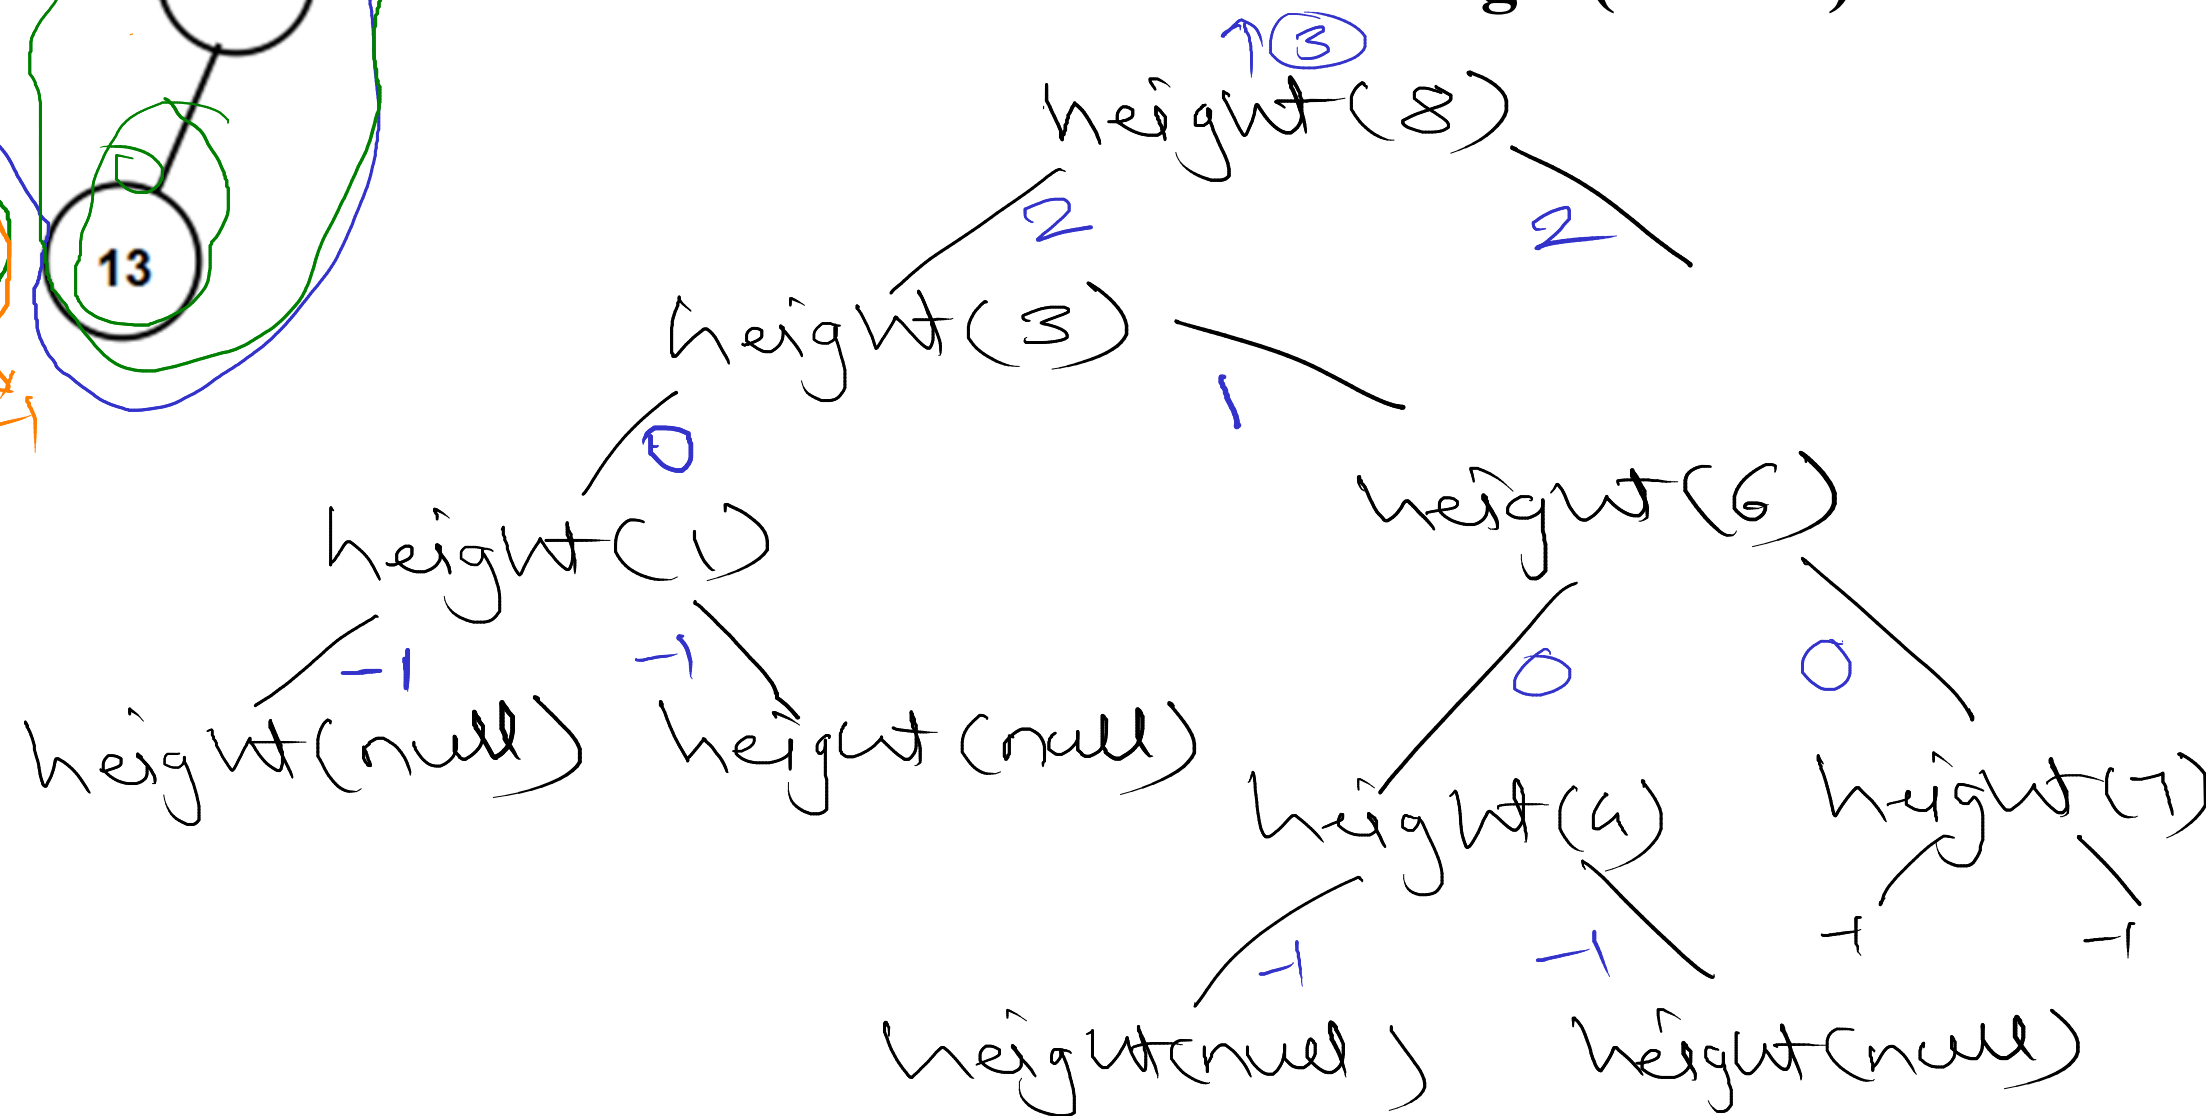 3
height(8)
2 2
13
height(3)
0 1
height(1) height(6)
-1 -1 0 0
height(null) height(null)
height(4) height(7)
-1 -1 -1 -1
height(null) height(null)